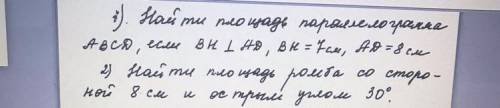 1). Найти площадь параллелограмма
ABCD, если BH ⊥ AD, BH = 7см, AD = 8см
2) Найти площадь ромба со сторо-
ной 8 см и острым углом 30°.